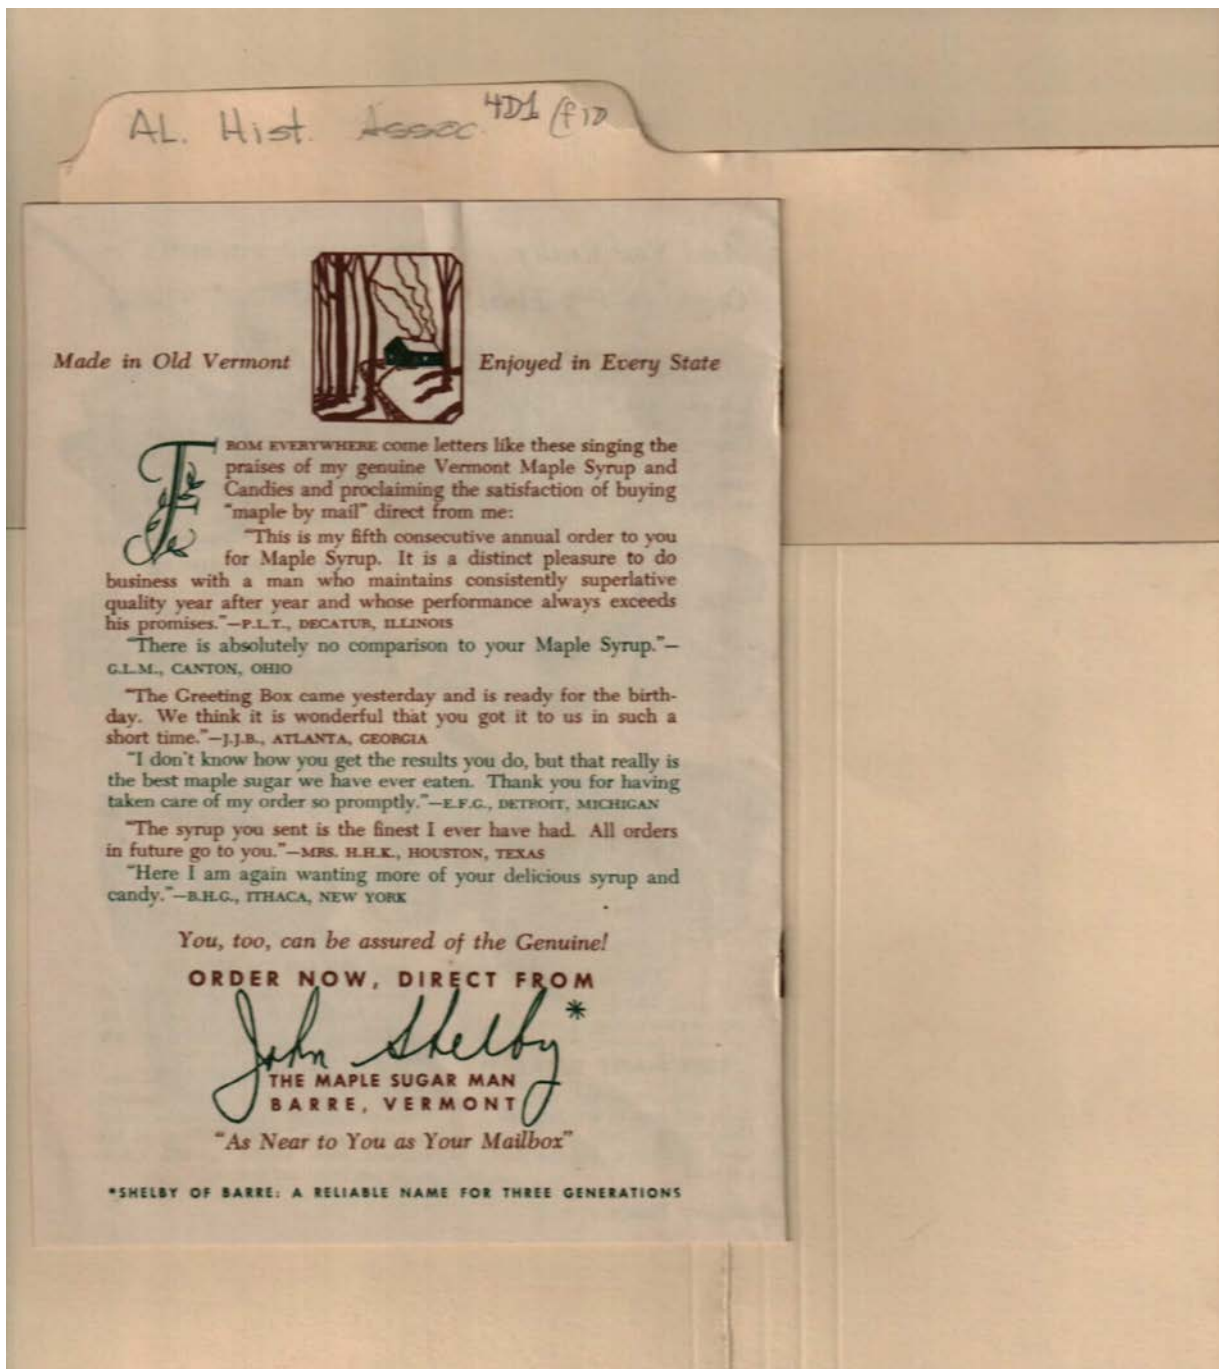 AL. Hist. Assoc. 4D1 (f10
Made in Old Vermont
Enjoyed in Every State
FROM EVERYWHERE come letters like these singing the
praises of my genuine Vermont Maple Syrup and
Candies and proclaiming the satisfaction of buying
"maple by mail" direct from me:
"This is my fifth consecutive annual order to you
for Maple Syrup. It is a distinct pleasure to do
business with a man who maintains consistently superlative
quality year after year and whose performance always exceeds
his promises."—P.L.T., DECATUR, ILLINOIS
"There is absolutely no comparison to your Maple Syrup."—
G.L.M., CANTON, OHIO
"The Greeting Box came yesterday and is ready for the birth-
day. We think it is wonderful that you got it to us in such a
short time."—J.J.B., ATLANTA, GEORGIA
"I don't know how you get the results you do, but that really is
the best maple sugar we have ever eaten. Thank you for having
taken care of my order so promptly."—E.F.G., DETROIT, MICHIGAN
"The syrup you sent is the finest I ever have had. All orders
in future go to you."—MRS. H.H.K., HOUSTON, TEXAS
"Here I am again wanting more of your delicious syrup and
candy."—B.H.G., ITHACA, NEW YORK
You, too, can be assured of the Genuine!
ORDER NOW, DIRECT FROM
John Shelby*
THE MAPLE SUGAR MAN
BARRE, VERMONT
"As Near to You as Your Mailbox"
*SHELBY OF BARRE: A RELIABLE NAME FOR THREE GENERATIONS